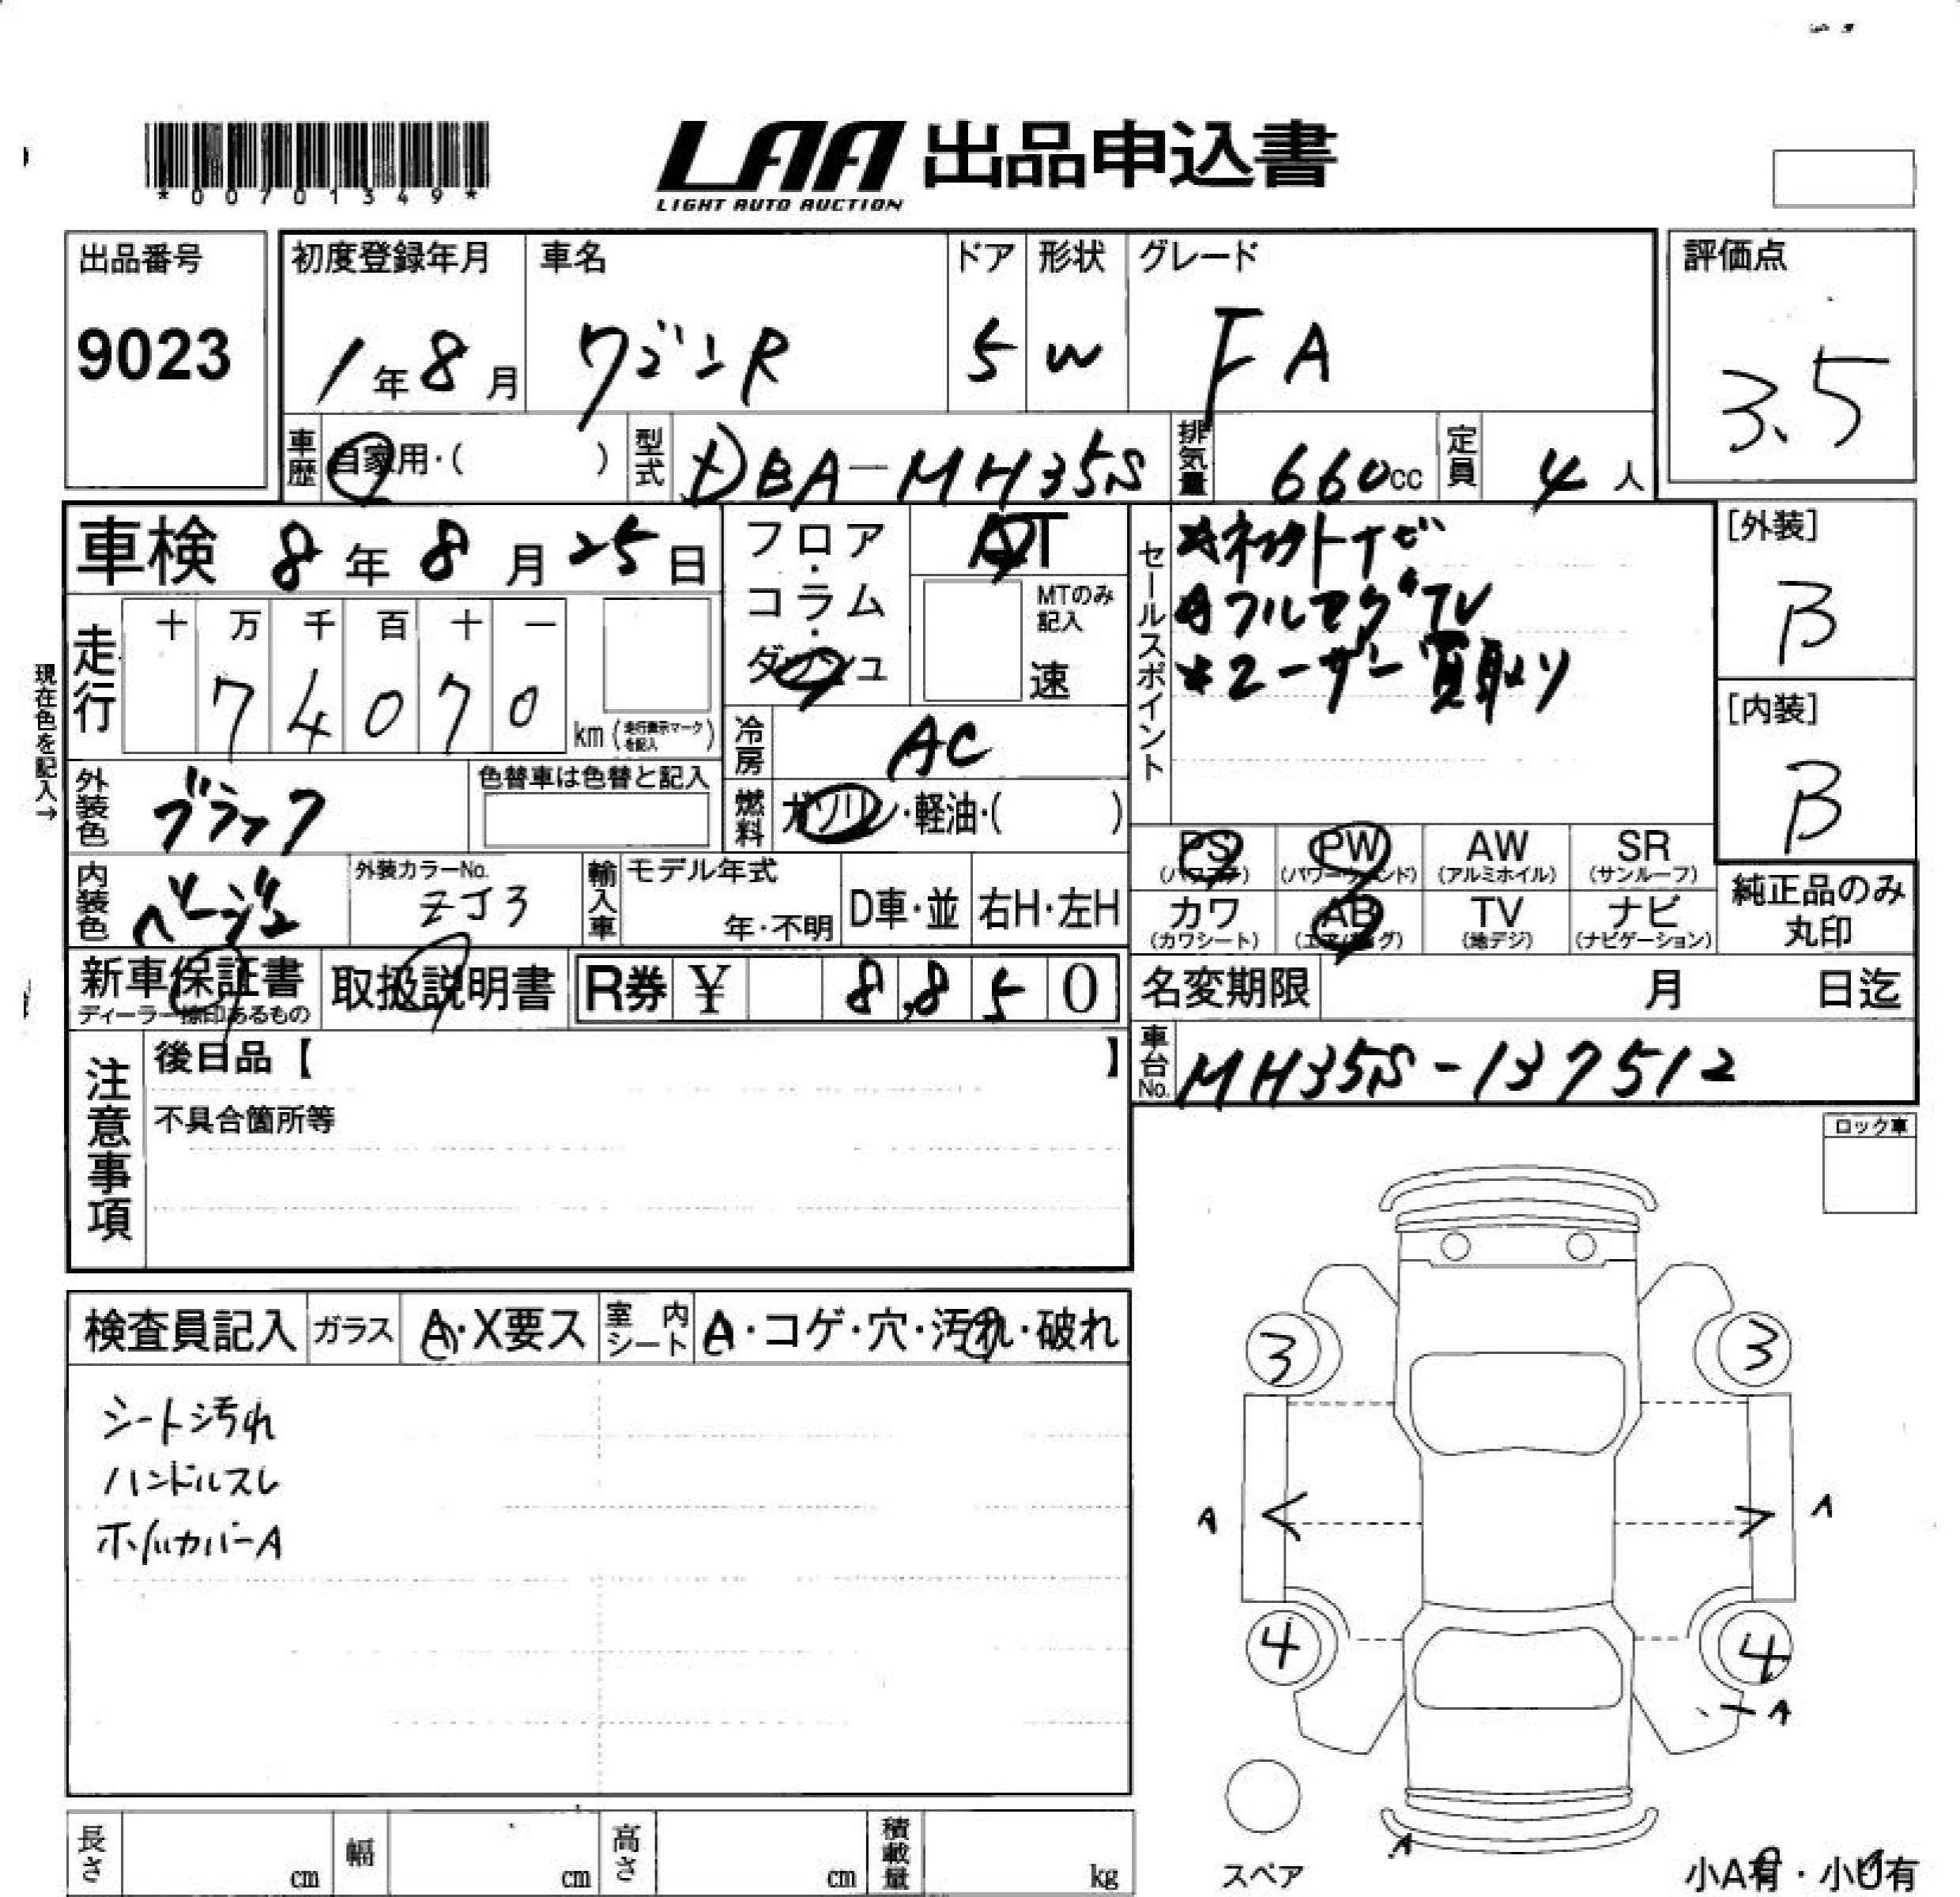 *00701349*
LAA 出品申込書
LIGHT AUTO AUCTION
出品番号
9023
初度登録年月
1年8月
車名
ワゴンR
ドア
5
形状
W
グレード
FA
評価点
3.5
車歴
自家用・( )
型式
DBA-MH35S
排気量
660cc
定員
4人
車検 8年8月25日
フロア・コラム・ダッシュ
AT
MTのみ記入
速
セールスポイント
*ネクサトナビ
フルセグTV
*ユーザー買取り
[外装]
B
[内装]
B
現在色を記入→
走行
十 万 千 百 十 一
7 4 0 7 0
km(走行表示マークを記入)
冷房
AC
外装色
ブラック
色替車は色替と記入
燃料
ガソリン・軽油・( )
内装色
ベージュ
外装カラーNo.
ZJ3
輸入車
モデル年式
年・不明
D車・並
右H・左H
PS
(パワステ)
PW
(パワーウィンド)
AW
(アルミホイル)
SR
(サンルーフ)
カワ
(カワシート)
AB
(エアバッグ)
TV
(地デジ)
ナビ
(ナビゲーション)
純正品のみ丸印
新車保証書
ディーラー捺印あるもの
取扱説明書
R券 ¥ 8,850
名変期限
月 日迄
車台No.
MH35S-137512
注意事項
後日品【 】
不具合箇所等
ロック車
検査員記入
ガラス
A・X要ス
室内シート
A・コゲ・穴・汚れ・破れ
シート汚れ
ハンドルスレ
ホイルカバーA
3
3
A
A
4
4
A
A
スペア
小A有・小U有
長さ
cm
幅
cm
高さ
cm
積載量
kg